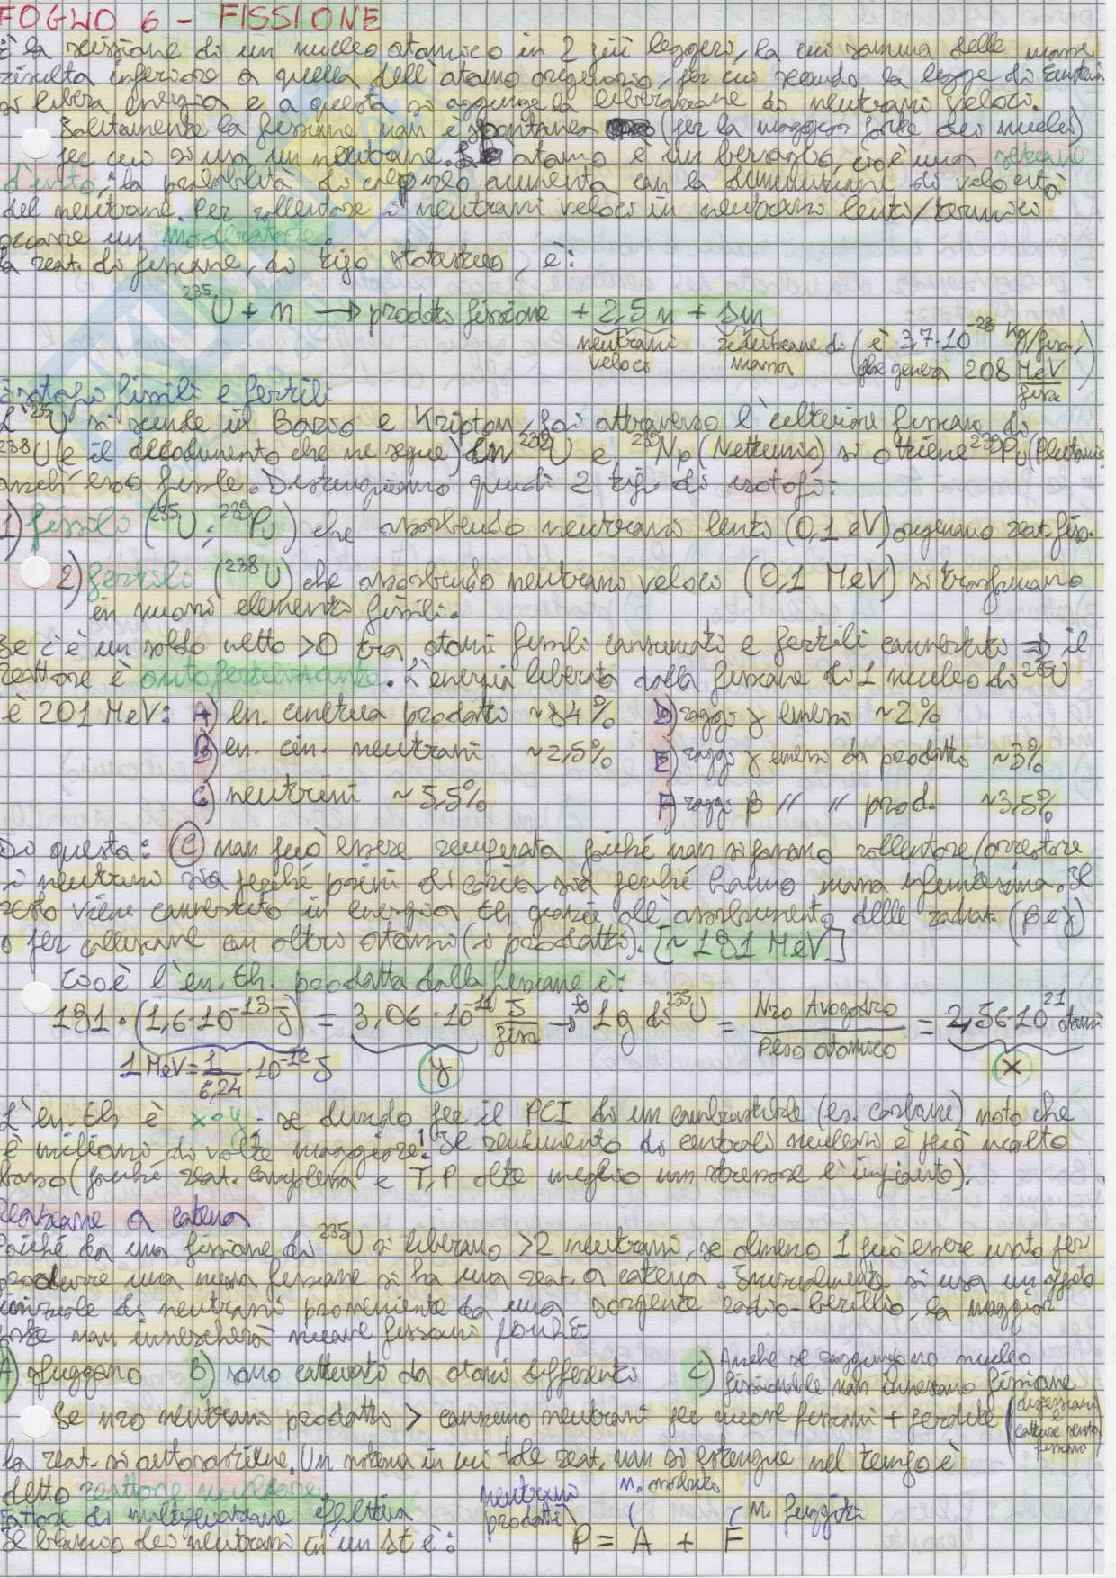 FOGLIO 6 - FISSIONE
È la scissione di un nucleo atomico in 2 più leggeri, la cui somma delle masse
risulta inferiore a quella dell'atomo originario, per cui secondo la legge di Einstein
si libera energia e a questa si aggiunge la liberazione di neutroni veloci.
Solitamente la fissione non è spontanea (per la maggior parte dei nuclei)
per cui si usa un neutrone. atomo è un bersaglio, cioè una sezione
d'urto; la probabilità di colpirlo aumenta con la diminuzione di velocità
del neutrone. Per rallentare i neutroni veloci in neutroni lenti/termici
occorre un moderatore.
La reaz. di fissione, di tipo statistico, è:
²³⁵U + n → prodotti fissione + 2,5 n + Δm
neutroni veloci riduzione di massa (è 3,7·10⁻²⁸ kg/fiss, che genera 208 MeV/fiss)
Isotopi fissili e fertili
L'²³⁵U si scinde in Bario e Kripton, poi attraverso l'ulteriore fissione di
²³⁸U (e il decadimento che ne segue) in ²³⁹U e ²³⁹Np (Nettunio) si ottiene ²³⁹Pu (Plutonio)
anch'esso fissile. Distinguiamo quindi 2 tipi di isotopi:
1) fissili (²³⁵U; ²³⁹Pu) che assorbendo neutroni lenti (0,1 eV) originano reaz. fiss.
2) fertili (²³⁸U) che assorbendo neutroni veloci (0,1 MeV) si trasformano
in nuovi elementi fissili.
Se c'è un saldo netto >0 tra atomi fissili consumati e fertili convertiti ⇒ il
reattore è autofertilizzante. L'energia liberata dalla fissione di 1 nucleo di ²³⁵U
è 201 MeV: A) en. cinetica prodotti ~84% D) raggi γ emessi ~2%
B) en. cin. neutroni ~2,5% E) raggi γ emessi da prodotti ~3%
C) neutrini ~5,5% F) raggi β // // prod. ~3,5%
Di questa: C non può essere recuperata poiché non si possono rallentare/arrestare
i neutrini sia perché privi di carica, sia perché hanno massa infinitesima. Il
resto viene convertito in energia th grazie all'assorbimento delle radiaz. (β e γ)
o per collisione con altri atomi (i prodotti). [~191 MeV]
Cioè l'en. th. prodotta dalla fissione è:
191 · (1,6·10⁻¹³ J) = 3,06·10⁻¹¹ J/fiss → 1 g di ²³⁵U = Nro Avogadro/Peso atomico = 2,56·10²¹ atomi
1 MeV = 1/6,24 · 10⁻¹² J y x
L'en. th è x·y; se divido per il PCI di un combustibile (es. carbone) noto che
è milioni di volte maggiore! Il rendimento di centrali nucleari è però molto
basso (poiché reat. complessa e T, P alte meglio non stressare l'impianto).
Reazione a catena
Poiché da una fissione di ²³⁵U si liberano >2 neutroni, se almeno 1 può essere usato per
produrre una nuova fissione si ha una reaz. a catena. Inizialmente si usa un
di neutroni proveniente da una sorgente radio-berillio, la maggior
parte non innescherà nuove fissioni POICHÈ
A) sfuggono B) sono catturati da atomi differenti C) Anche se raggiungono nucleo
fissionabile non innescano fissione
Se nro neutroni prodotti > consumo neutroni per nuove fissioni + perdite (dispersioni e catture senza fissione)
la reaz. si autosostiene. Un sistema in cui tale reaz. non si estingue nel tempo è
detto reattore nucleare.
Fattore di moltiplicazione effettiva neutroni prodotti n. assorbiti n. fuggiti
Il bilancio dei neutroni in un Δt è: P = A + F